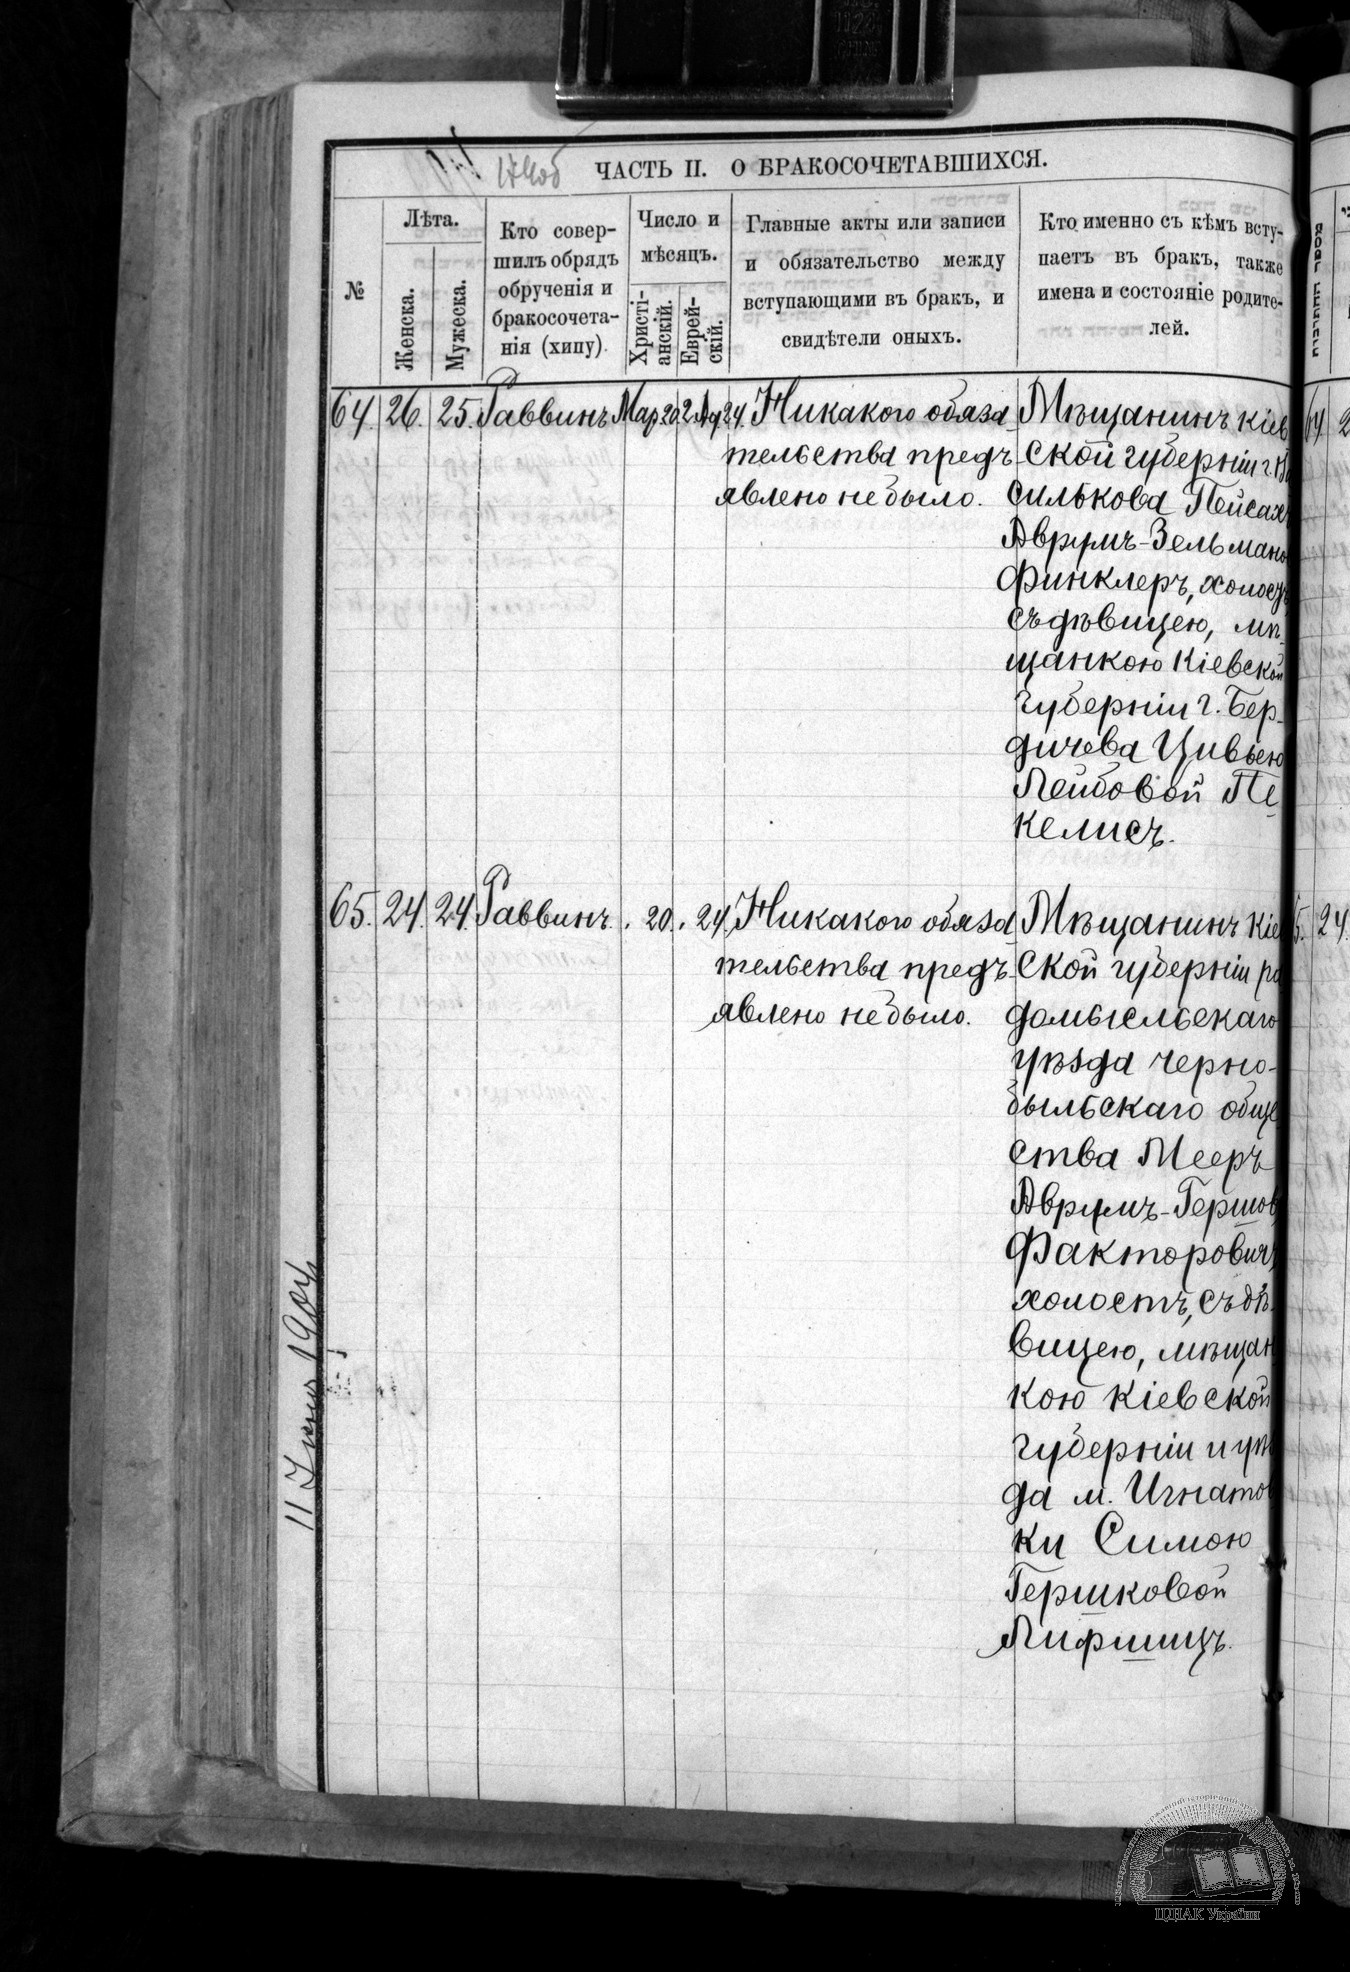 174об
ЧАСТЬ II. О БРАКОСОЧЕТАВШИХСЯ.
№
Лѣта.
Женска.
Мужеска.
Кто совер-
шилъ обрядъ
обрученія и
бракосочета-
нія (хипу).
Число и
мѣсяцъ.
Христі-
анскій.
Еврей-
скій.
Главные акты или записи
и обязательство между
вступающими въ бракъ, и
свидѣтели оныхъ.
Кто именно съ кѣмъ всту-
паетъ въ бракъ, также
имена и состояніе родите-
лей.
64. 26. 25. Раввинъ Мар. 20. 2 Ад. 24. Никакого обяза
тельства предъ-
явлено не было.
Мѣщанинъ Кіев
ской губерніи г. Ва
силькова Пейсахъ
Аврумъ-Зельмано
Финклеръ, холостъ
съ дѣвицею, мѣ-
щанкою Кіевской
губерніи г. Бер-
дичева Цивьею
Лейбовой Пе
келисъ.
65. 24. 24. Раввинъ. 20. 24. Никакого обяза
тельства предъ-
явлено не было.
Мѣщанинъ Кіе
ской губерніи ра
домысльскаго
уѣзда черно-
быльскаго обще
ства Мееръ
Аврумъ-Гершов
Факторовичъ
холостъ, съ дѣ-
вицею, мѣщан
кою Кіевской
губерніи и уѣз
да м. Игнатов
ки Симою
Гершковой
Лифшицъ.
11 Іюня 1904
64
2
5. 24.
ЦДІАК України